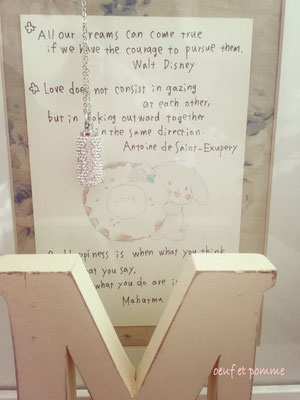 All our dreams can come true
if we have the courage to pursue them.
Walt Disney
Love does not consist in gazing
at each other,
but in looking outward together
in the same direction.
Antoine de Saint-Exupery
Love
Happiness is when what you think
what you say,
what you do are
Mahatma
M
oeuf et pomme